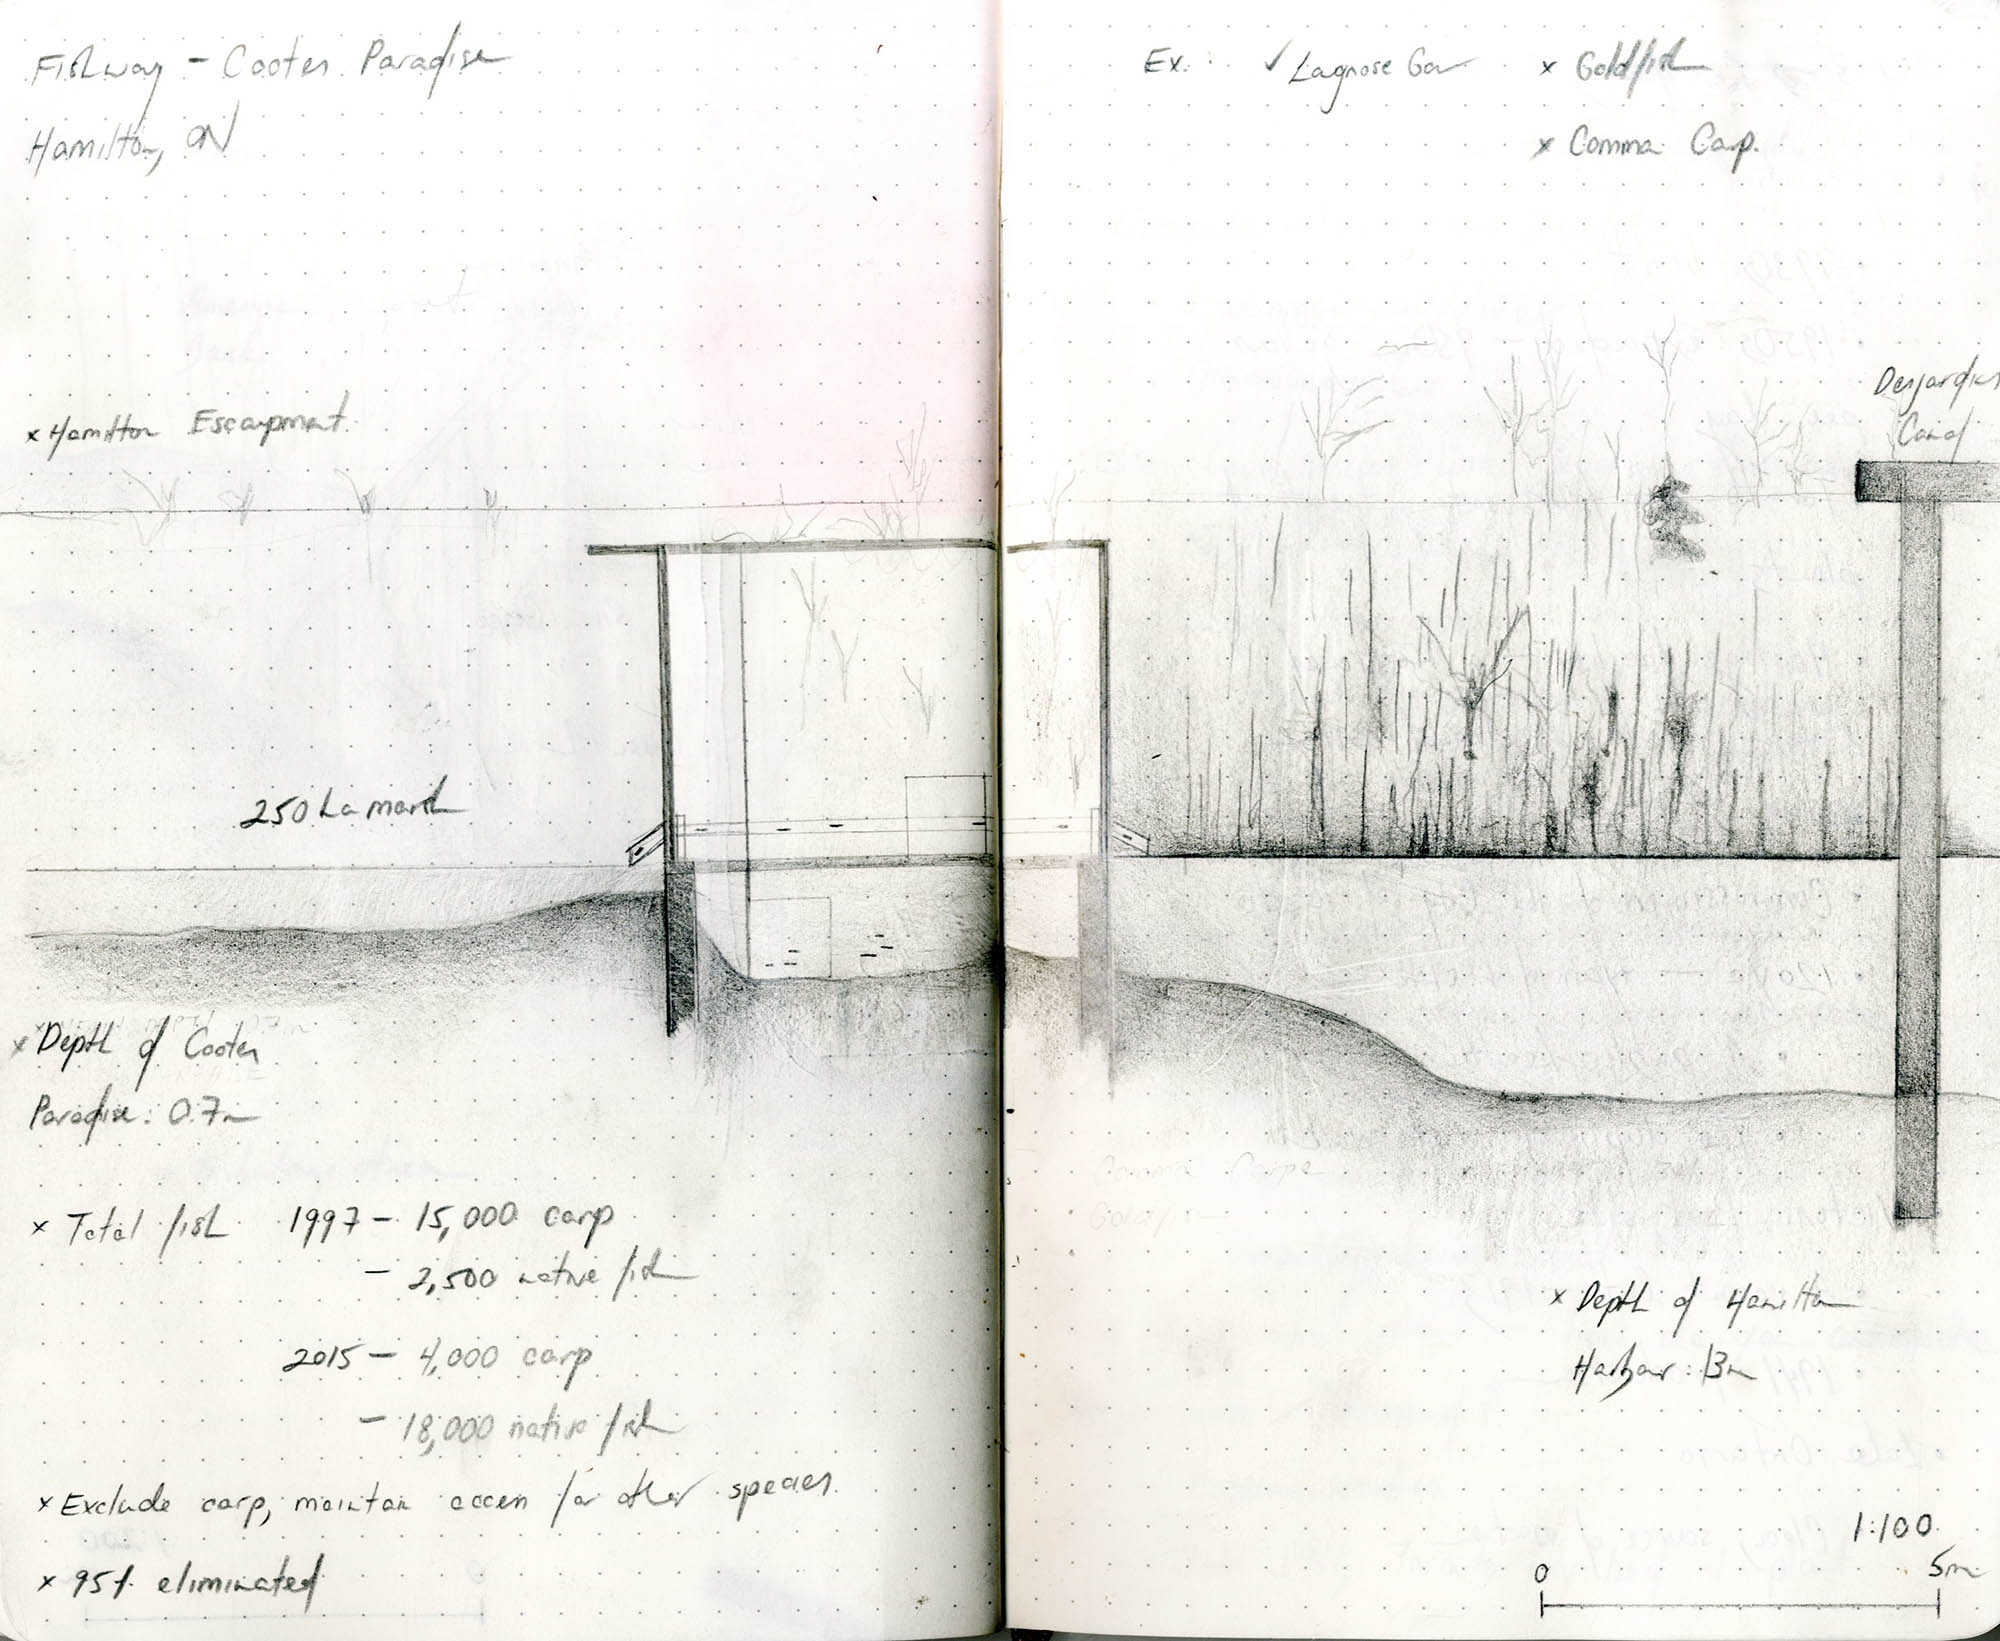 Fishway - Cootes Paradise
Hamilton, ON
Ex. ✓ Lagnose Gar x Goldfish
x Common Carp.
x Hamilton Escarpment
Desjardins
Canal
250 ha marsh
x Depth of Cootes
Paradise: 0.7m
x Total fish 1997 - 15,000 carp
- 2,500 native fish
2015 - 4,000 carp
- 18,000 native fish
x Exclude carp, maintain access for other species.
x 95% eliminated
x Depth of Hamilton
Harbour: 13m
1:100
0 5m